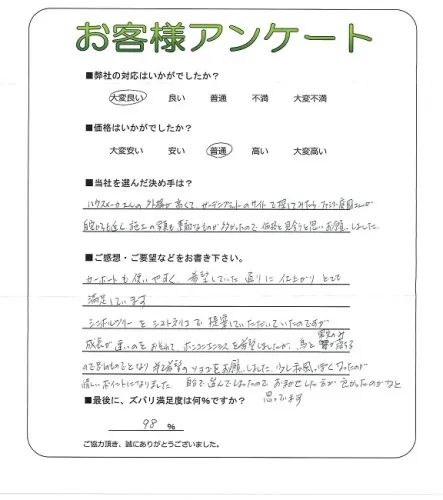 お客様アンケート
■弊社の対応はいかがでしたか？
大変良い 良い 普通 不満 大変不満
■価格はいかがでしたか？
大変安い 安い 普通 高い 大変高い
■当社を選んだ決め手は？
ハウスメーカーさんの外構が高くて、ガーデンプラットのサイトで探してみたら、ファミリー庭園さんが
自宅からも近く、施工の写真も素敵なものが多かったので、価格も見合うと思いお願いしました。
■ご感想・ご要望などをお書き下さい。
カーポートも使いやすく、希望していた通りに仕上がりとても
満足しています
シンボルツリーをシマトネリコで提案していただいていたのですが
成長が速いのを
を希望しましたが、鳥
お願いしました。少し和風っぽくなったのが
ポイントになりました。
思っています
■最後に、ズバリ満足度は何%ですか？
98 %
ご協力頂き、誠にありがとうございました。